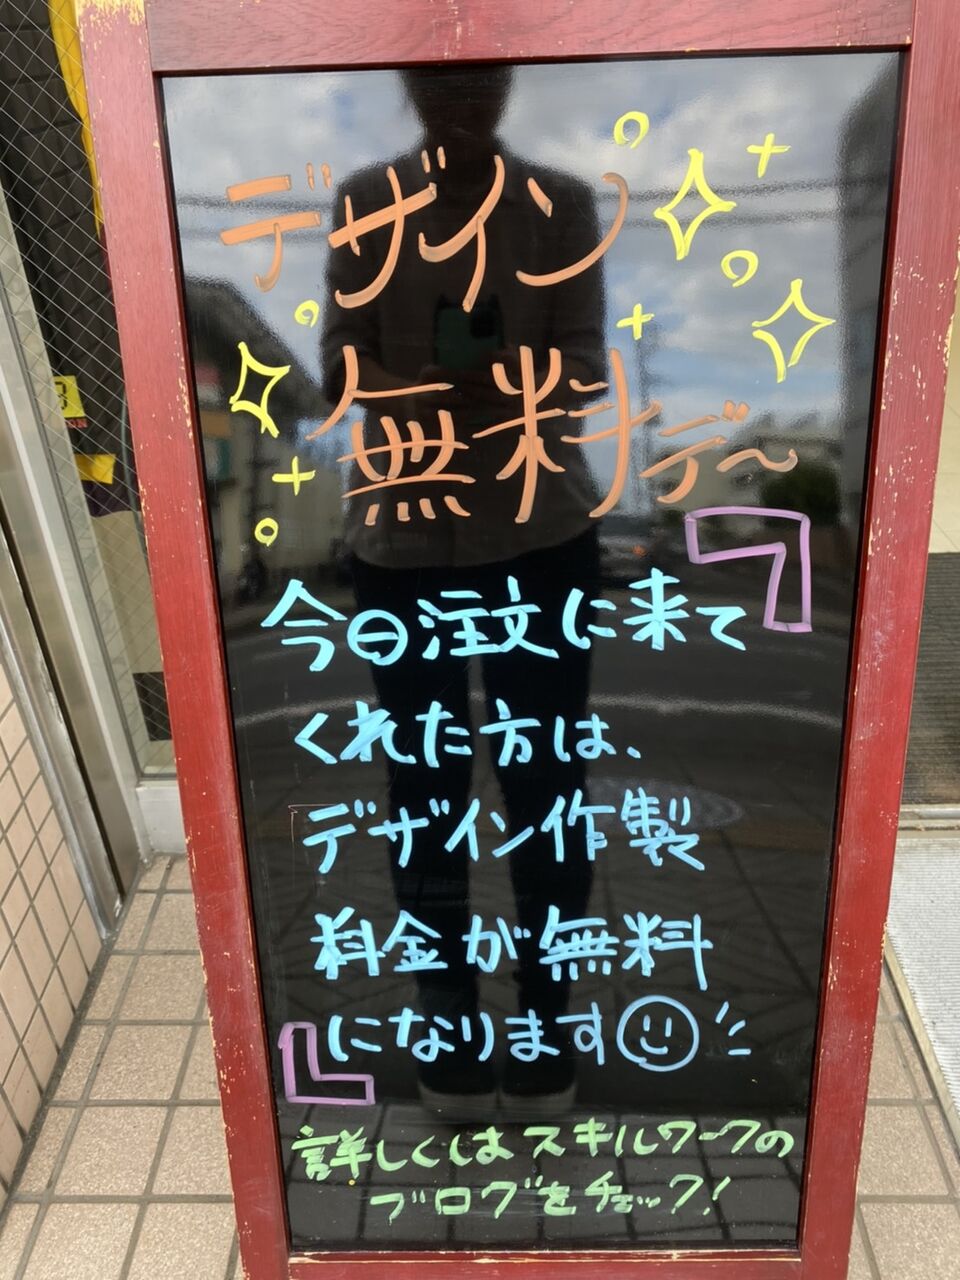 デザイン
無料デ〜
今日注文に来て
くれた方は、
デザイン作製
料金が無料
になります
詳しくはスキルワークの
ブログをチェック!